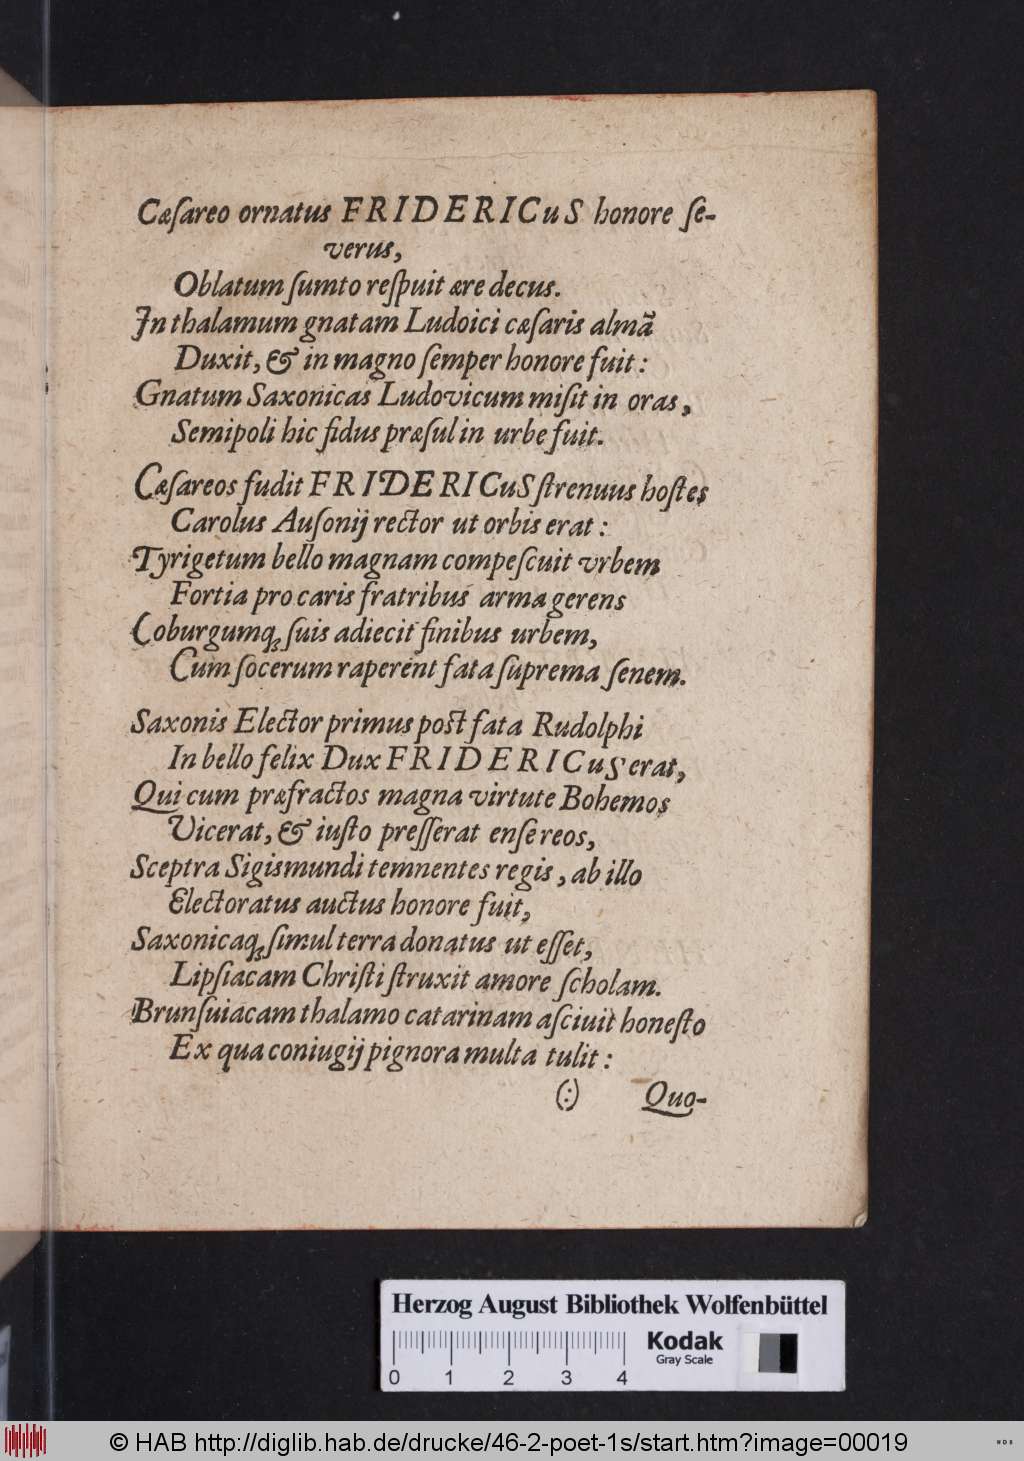 Cæſareo ornatus FRIDERICuS honore ſe-
verus,
Oblatum ſumto reſpuit ære decus.
In thalamum gnatam Ludoici cæſaris almã
Duxit, & in magno ſemper honore fuit:
Gnatum Saxonicas Ludovicum miſit in oras,
Semipoli hic fidus præſul in urbe fuit.
Cæſareos fudit FRIDERICuS ſtrenuus hoſtes
Carolus Auſonij rector ut orbis erat:
Tyrigetum bello magnam compeſcuit vrbem
Fortia pro caris fratribus arma gerens
Coburgumq; ſuis adiecit finibus urbem,
Cum ſocerum raperent fata ſuprema ſenem.
Saxonis Elector primus poſt fata Rudolphi
In bello felix Dux FRIDERICuS erat,
Qui cum præfractos magna virtute Bohemos
Vicerat, & iuſto preſſerat enſe reos,
Sceptra Sigismundi temnentes regis, ab illo
Electoratus auctus honore fuit,
Saxonicaq; ſimul terra donatus ut eſſet,
Lipſiacam Chriſti ſtruxit amore ſcholam.
Brunſuiacam thalamo catarinam aſciuit honeſto
Ex qua coniugij pignora multa tulit:
(:) Quo-
Herzog August Bibliothek Wolfenbüttel
Kodak
Gray Scale
0 1 2 3 4
© HAB http://diglib.hab.de/drucke/46-2-poet-1s/start.htm?image=00019